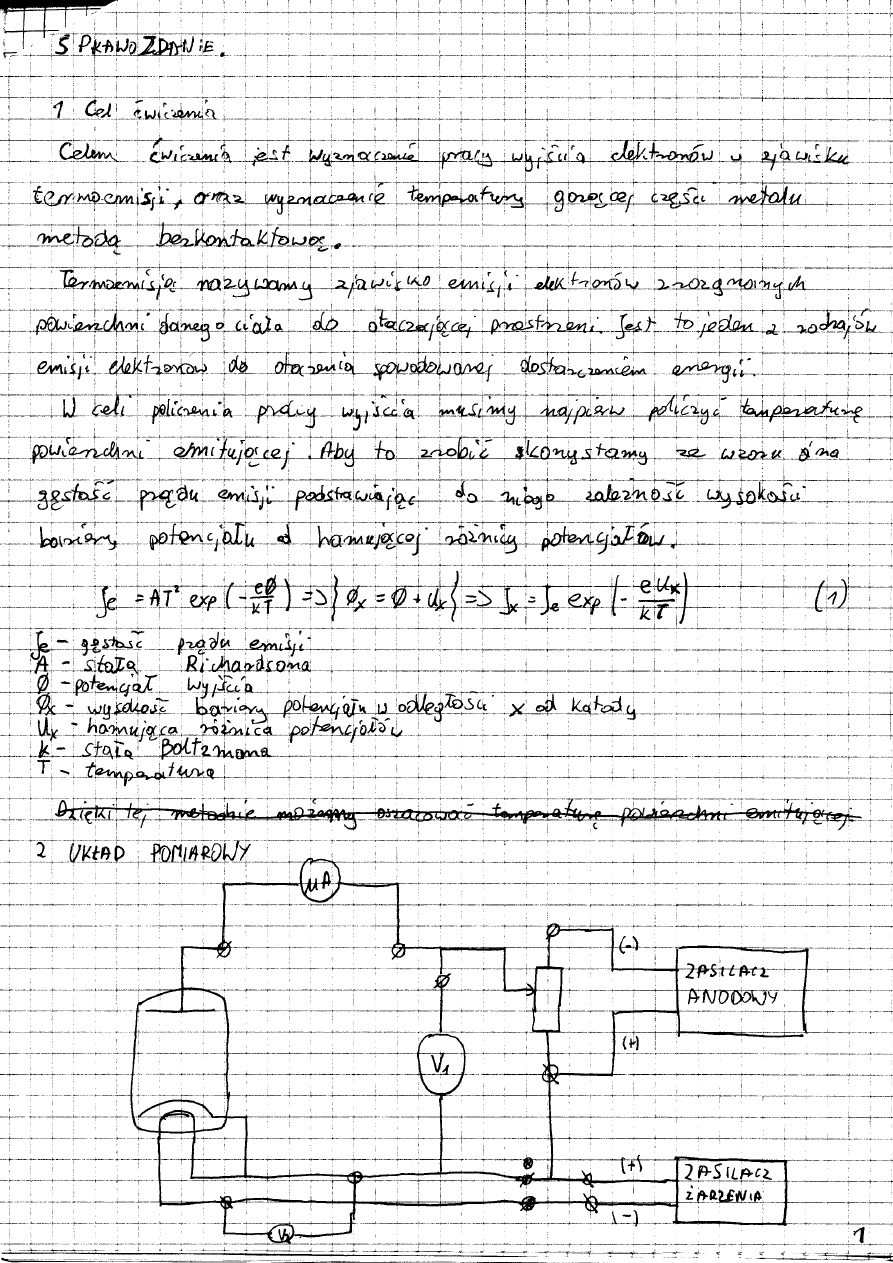 SPRAWOZDANIE.
1 Cel ćwiczenia
Celem ćwiczenia jest wyznaczenie pracy wyjścia elektronów w zjawisku
termoemisji, oraz wyznaczenie temperatury gorącej części metalu
metodą bezkontaktową.
Termoemisją nazywamy zjawisko emisji elektronów z rozgrzanych
powierzchni danego ciała do otaczającej przestrzeni. Jest to jeden z rodzajów
emisji elektronow do otoczenia spowodowanej dostarczeniem energii.
W celi policzenia pracy wyjścia musimy najpierw policzyć temperaturę
powierzchni emitującej. Aby to zrobić skorzystamy ze wzoru na
gęstość prądu emisji podstawiając do niego zależność wysokości
bariery potencjału od hamującej różnicy potencjałów.
Je = AT² exp(-eΦ/kT) => {Φx = Φ + Ux} => Jx = Je exp(-eUx/kT) (1)
Je - gęstość prądu emisji
A - stała Richardsona
Φ - potencjał wyjścia
Φx - wysokość bariery potencjału w odległości x od katody
Ux - hamująca różnica potencjałów
k - stała Boltzmana
T - temperatura
Dzięki tej metodzie możemy oszacować temperaturę powierzchni emitującej.
2 UKŁAD POMIAROWY
μA
(-)
ZASILACZ
ANODOWY
(+)
V1
(+)
ZASILACZ
ŻARZENIA
V2
(-)
1